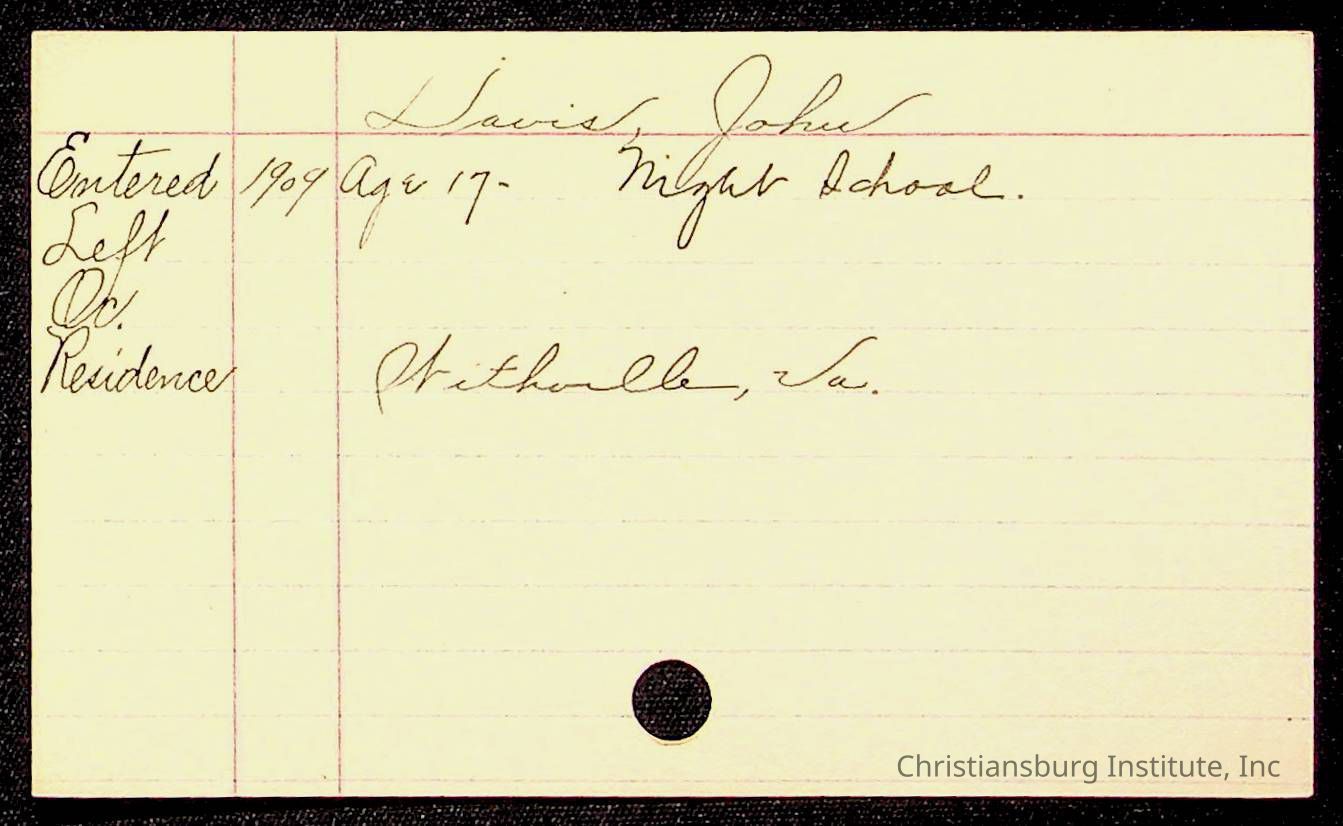 Davis, John
Entered 1909 Age 17- Night School.
Left
Oc.
Residence Withville, Va.
Christiansburg Institute, Inc